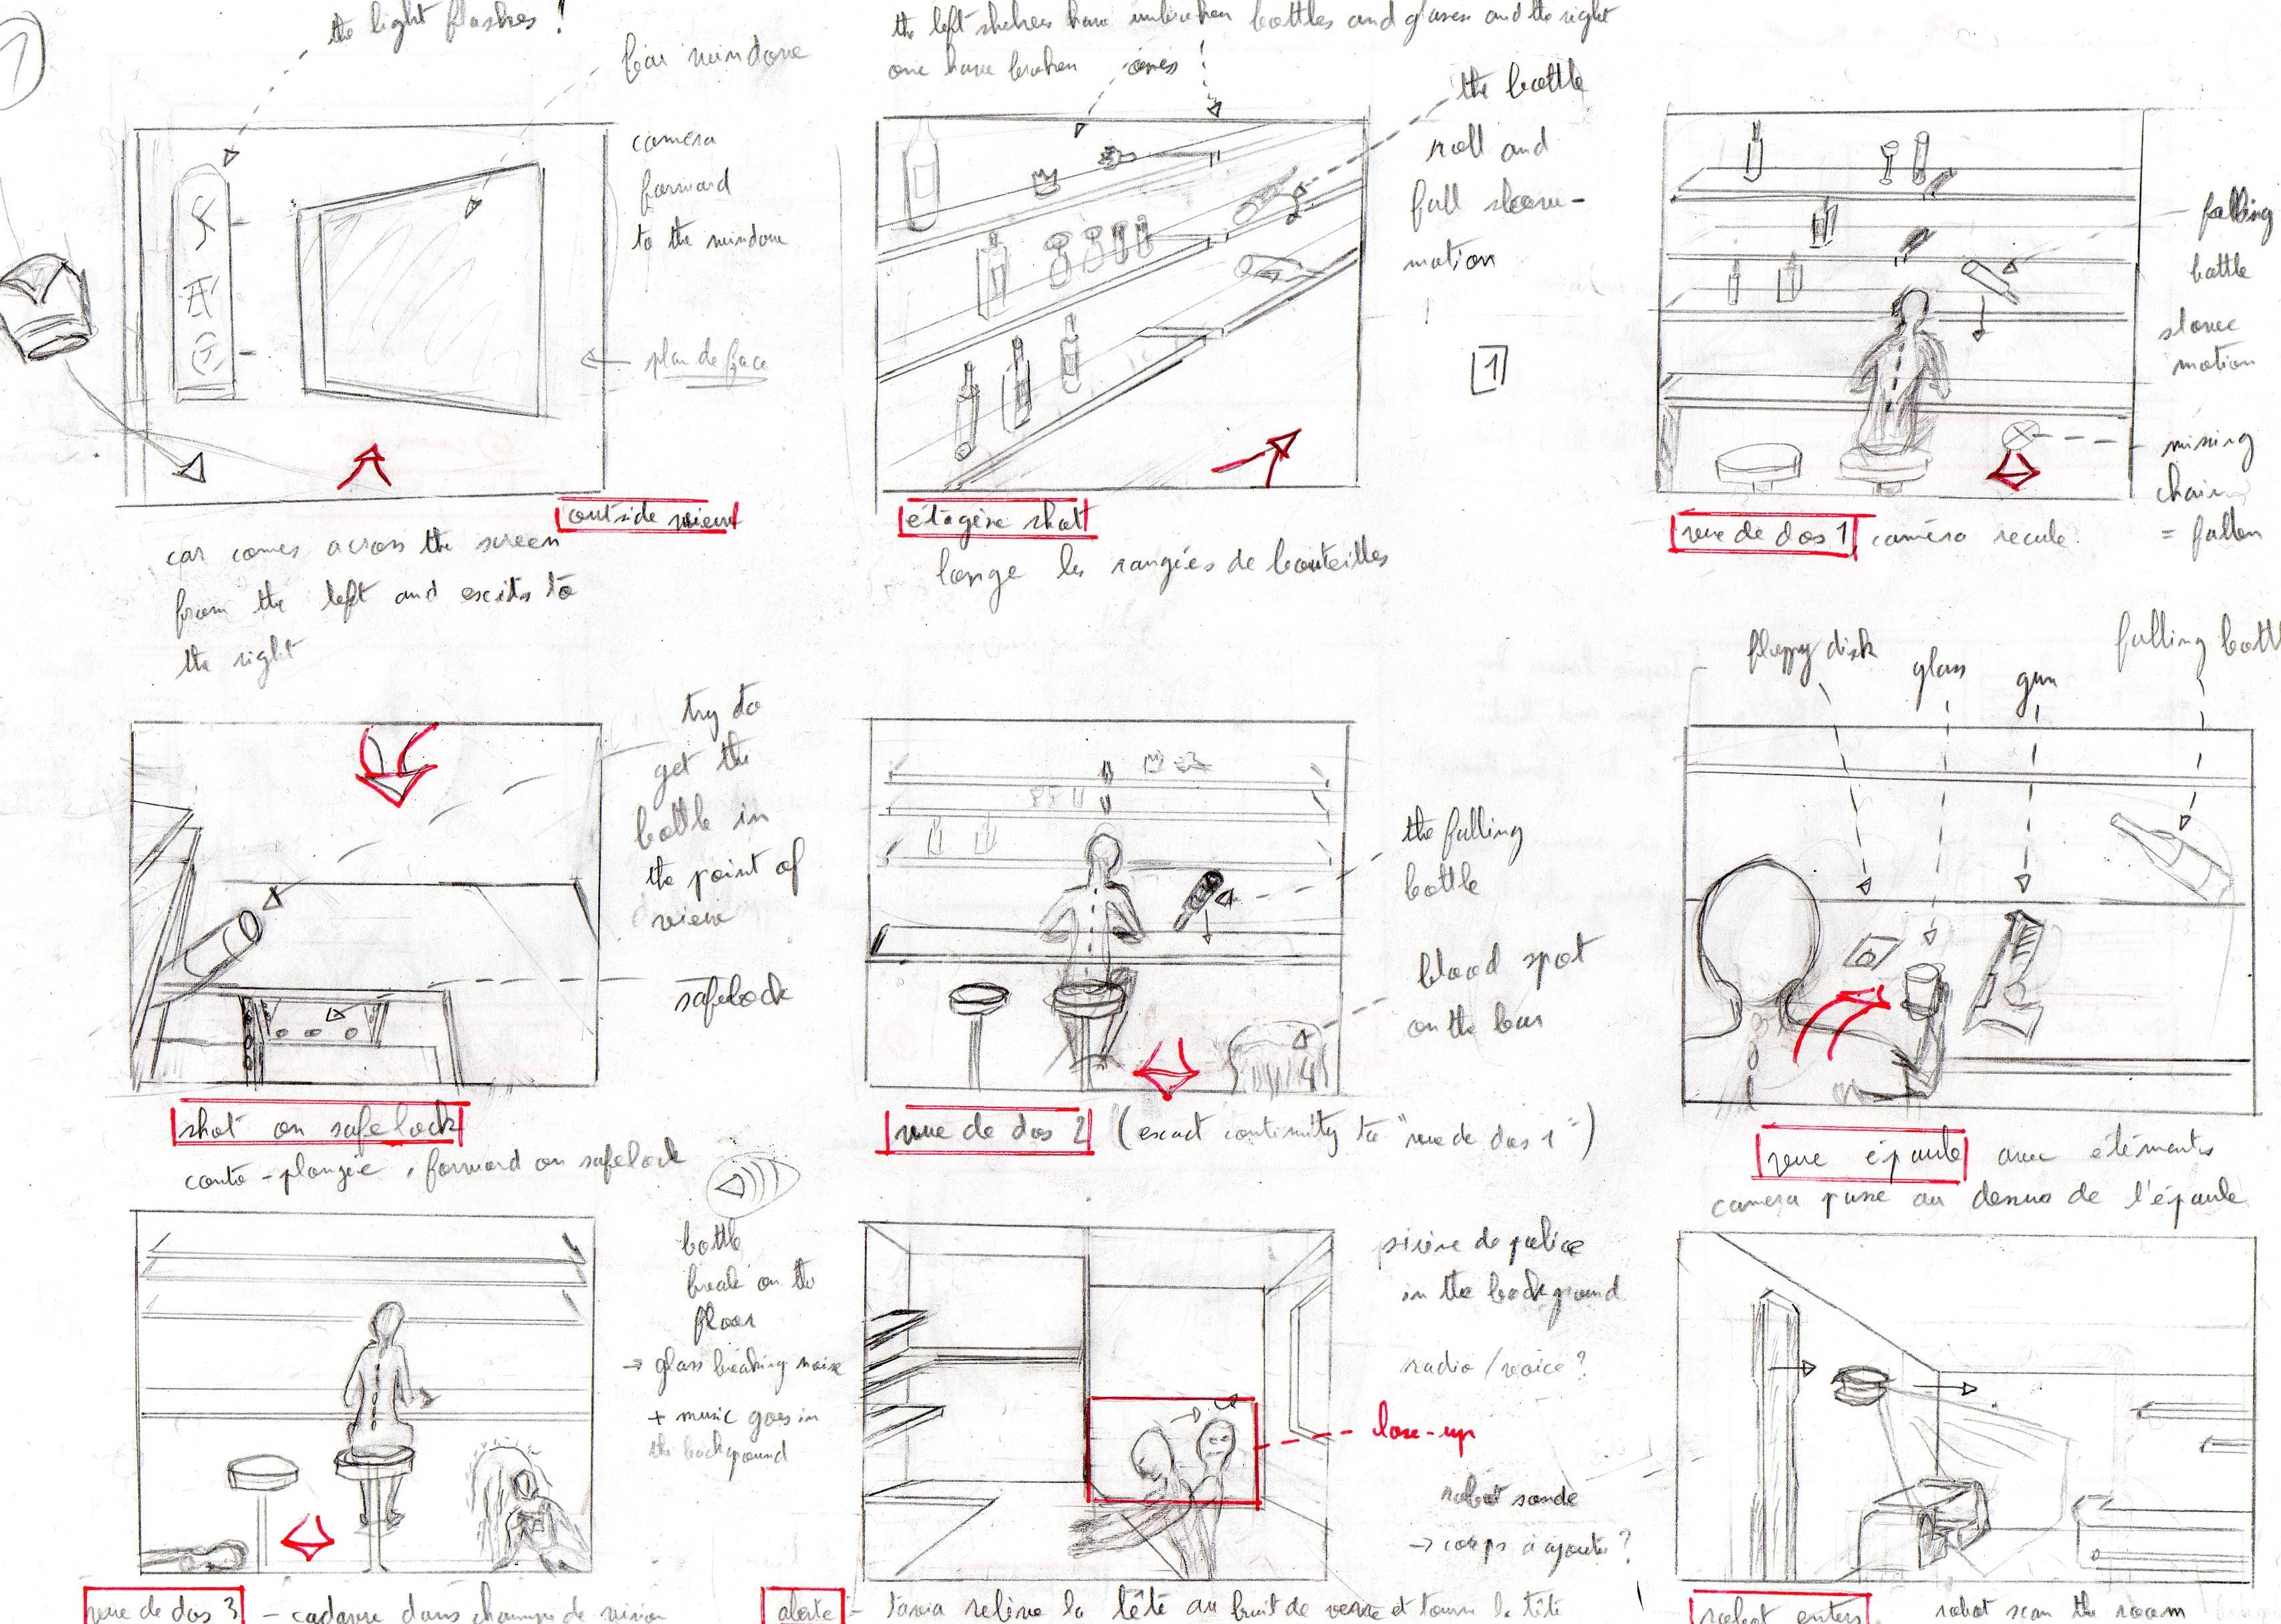 1
the light flashes !
bar windowe
camera
forward
to the windowe
plan de face
outside wiew
car comes across the screen
from the left and exits to
the right
the left shelves have unbroken bottles and glases and the right
one have broken ones
the bottle
roll and
fall slowe-
motion
1
étagère shot
longe les rangées de bouteilles
falling
bottle
slowe
motion
missing
chair
= fallen
vue de dos 1 caméra recule
try to
get the
bottle in
the point of
view
safelock
shot on safelock
contre-plongée, forward on safelock
the falling
bottle
blood spot
on the bar
vue de dos 2 (exact continuity to "vue de dos 1")
floppy disk
glass
gun
falling bott
vue épaule avec éléments
camera passe au dessus de l'épaule
bottle
break on the
floor
→ glass breaking noise
+ music goes in
the background
vue de dos 3 - cadavre dans champ de vision
sirène de police
in the background
radio / voice ?
close-up
robot sonde
→ corps à ajouter ?
alerte - relève la tête au bruit de verre et tourne la tête
robot enters robot scan the room